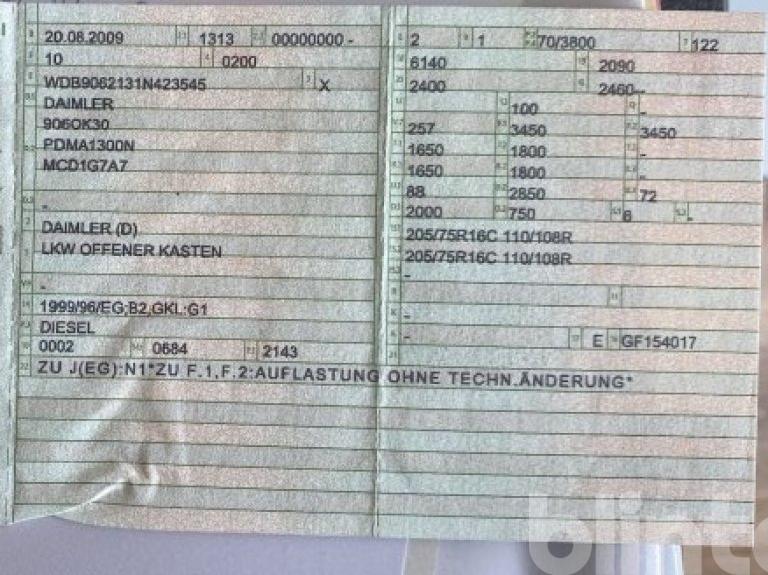 20.08.2009 1313 00000000 -
10 0200
WDB9062131N423545 X
DAIMLER
906OK30
PDMA1300N
MCD1G7A7
-
DAIMLER (D)
LKW OFFENER KASTEN
-
1999/96/EG;B2,GKL:G1
DIESEL
0002 0684 2143
2 1 70/3800 122
6140 2090
2400 2460--
- 100 -
257 3450 3450
1650 1800 -
1650 1800 -
88 2850 72
2000 750 6 -
205/75R16C 110/108R
205/75R16C 110/108R
-
-
- E GF154017
ZU J(EG):N1*ZU F.1,F.2:AUFLASTUNG OHNE TECHN.ÄNDERUNG*
blinto